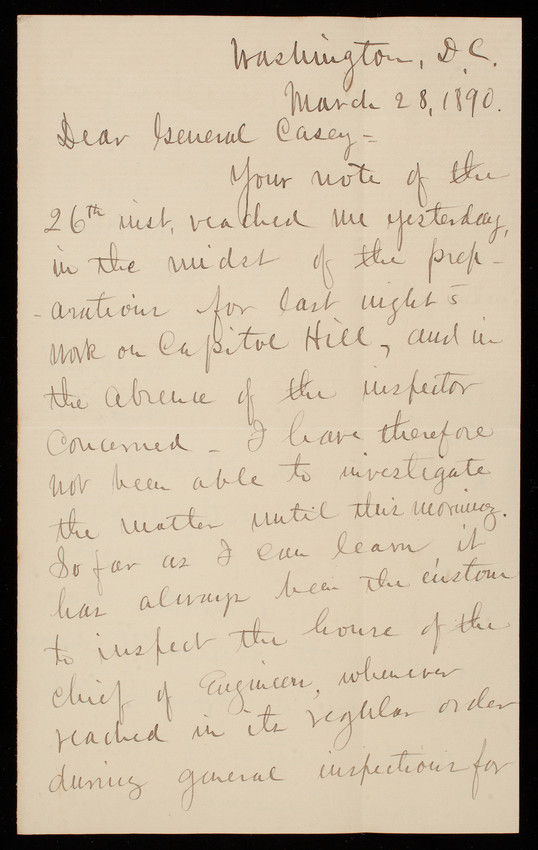 Washington, D.C.
March 28, 1890.
Dear General Casey -
Your note of the
26th inst. reached me yesterday,
in the midst of the prep-
-arations for last night's
work on Capitol Hill, and in
the absence of the inspector
concerned - I have therefore
not been able to investigate
the matter until this morning.
So far as I can learn, it
has always been the custom
to inspect the house of the
Chief of Engineers, whenever
reached in its regular order
during general inspections for